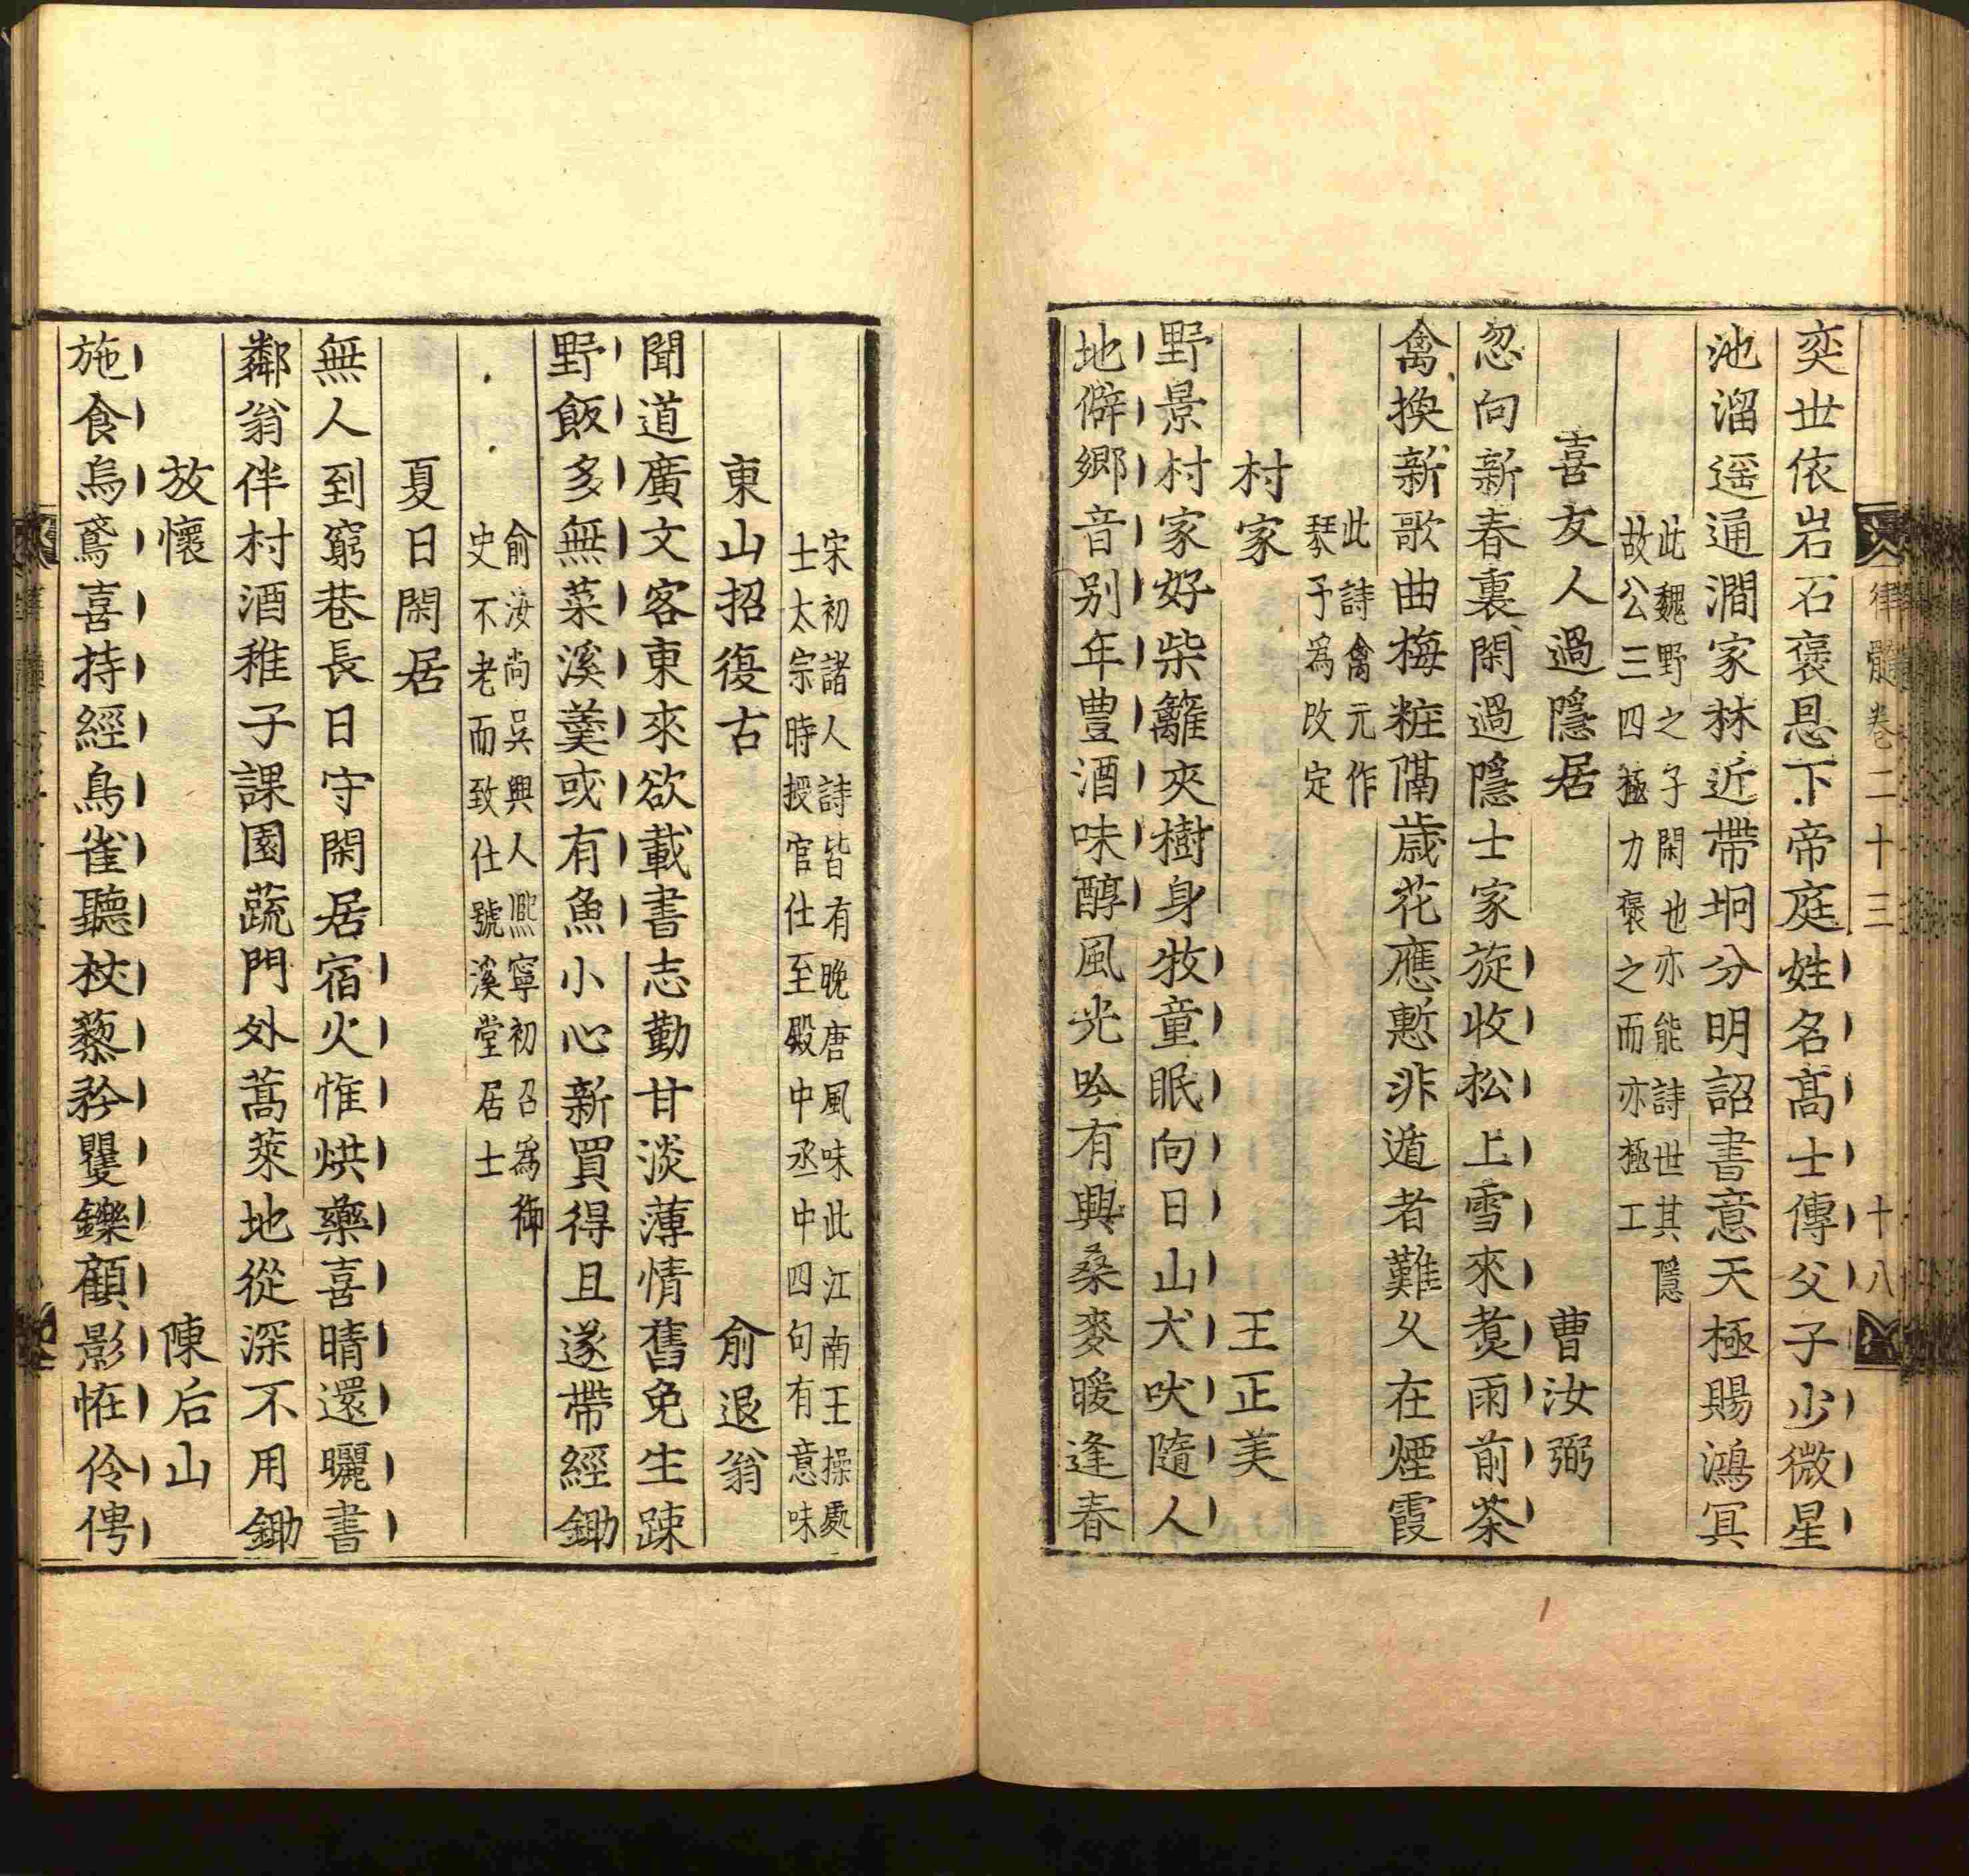 律髓卷二十三 十八
奕世依岩石褒恩下帝庭姓名高士傳父子少微星
池溜遥通澗家林近帶坰分明詔書意天極賜鴻冥
此魏野之子閑也亦能詩世其隱
故公三四極力褒之而亦極工
喜友人過隱居 曹汝弼
忽向新春裏閑過隱士家旋收松上雪來煑雨前茶
禽換新歌曲梅粧隔歲花應慙非遁者難久在煙霞
此詩禽元作
琴予爲改定
村家 王正美
野景村家好柴籬夾樹身牧童眠向日山犬吠隨人
地僻鄉音别年豊酒味醇風光吟有興桑麥暖逢春
宋初諸人詩皆有晚唐風味此江南王操處
士太宗時授官仕至殿中丞中四句有意味
東山招復古 俞退翁
聞道廣文客東來欲載書志勤甘淡薄情舊免生踈
野飯多無菜溪羮或有魚小心新買得且遂帶經鋤
俞汝尚吳興人熈寧初召爲御
史不老而致仕號溪堂居士
夏日閑居
無人到窮巷長日守閑居宿火惟烘藥喜晴還曬書
鄰翁伴村酒稚子課園蔬門外蒿萊地從深不用鋤
放懷 陳后山
施食烏鳶喜持經鳥雀聽杖藜矜矍鑠顧影恠伶俜